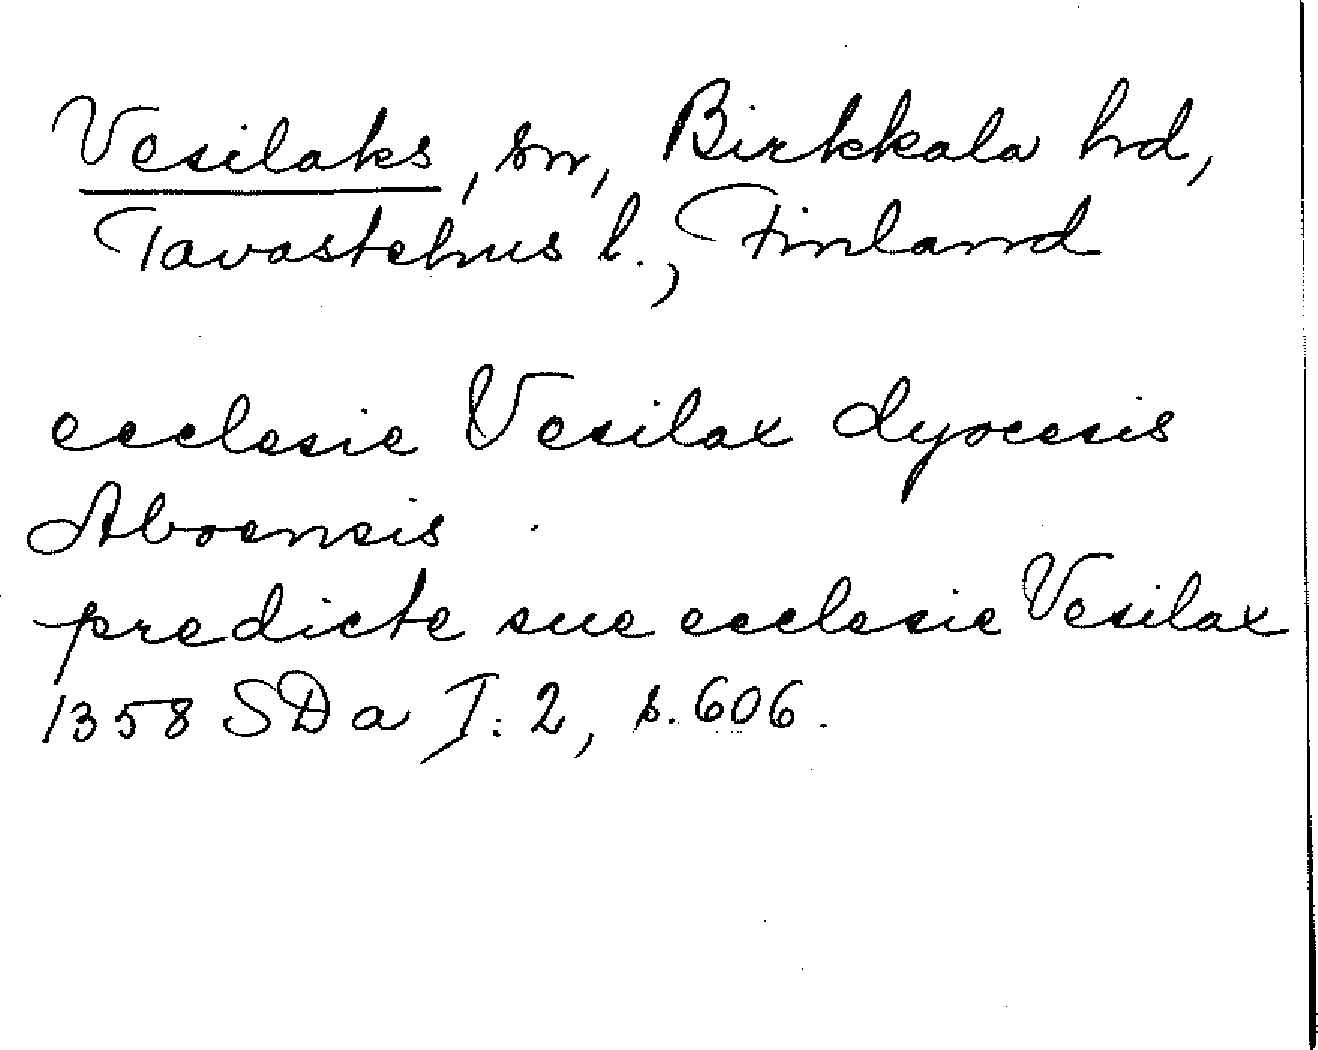 Vesilaks, sn, Birkkala hd,
Tavastehus l., Finland
ecclesie Vesilax dyocesis
Aboensis
predicte sue ecclesie Vesilax
1358 SDa I: 2, s. 606.